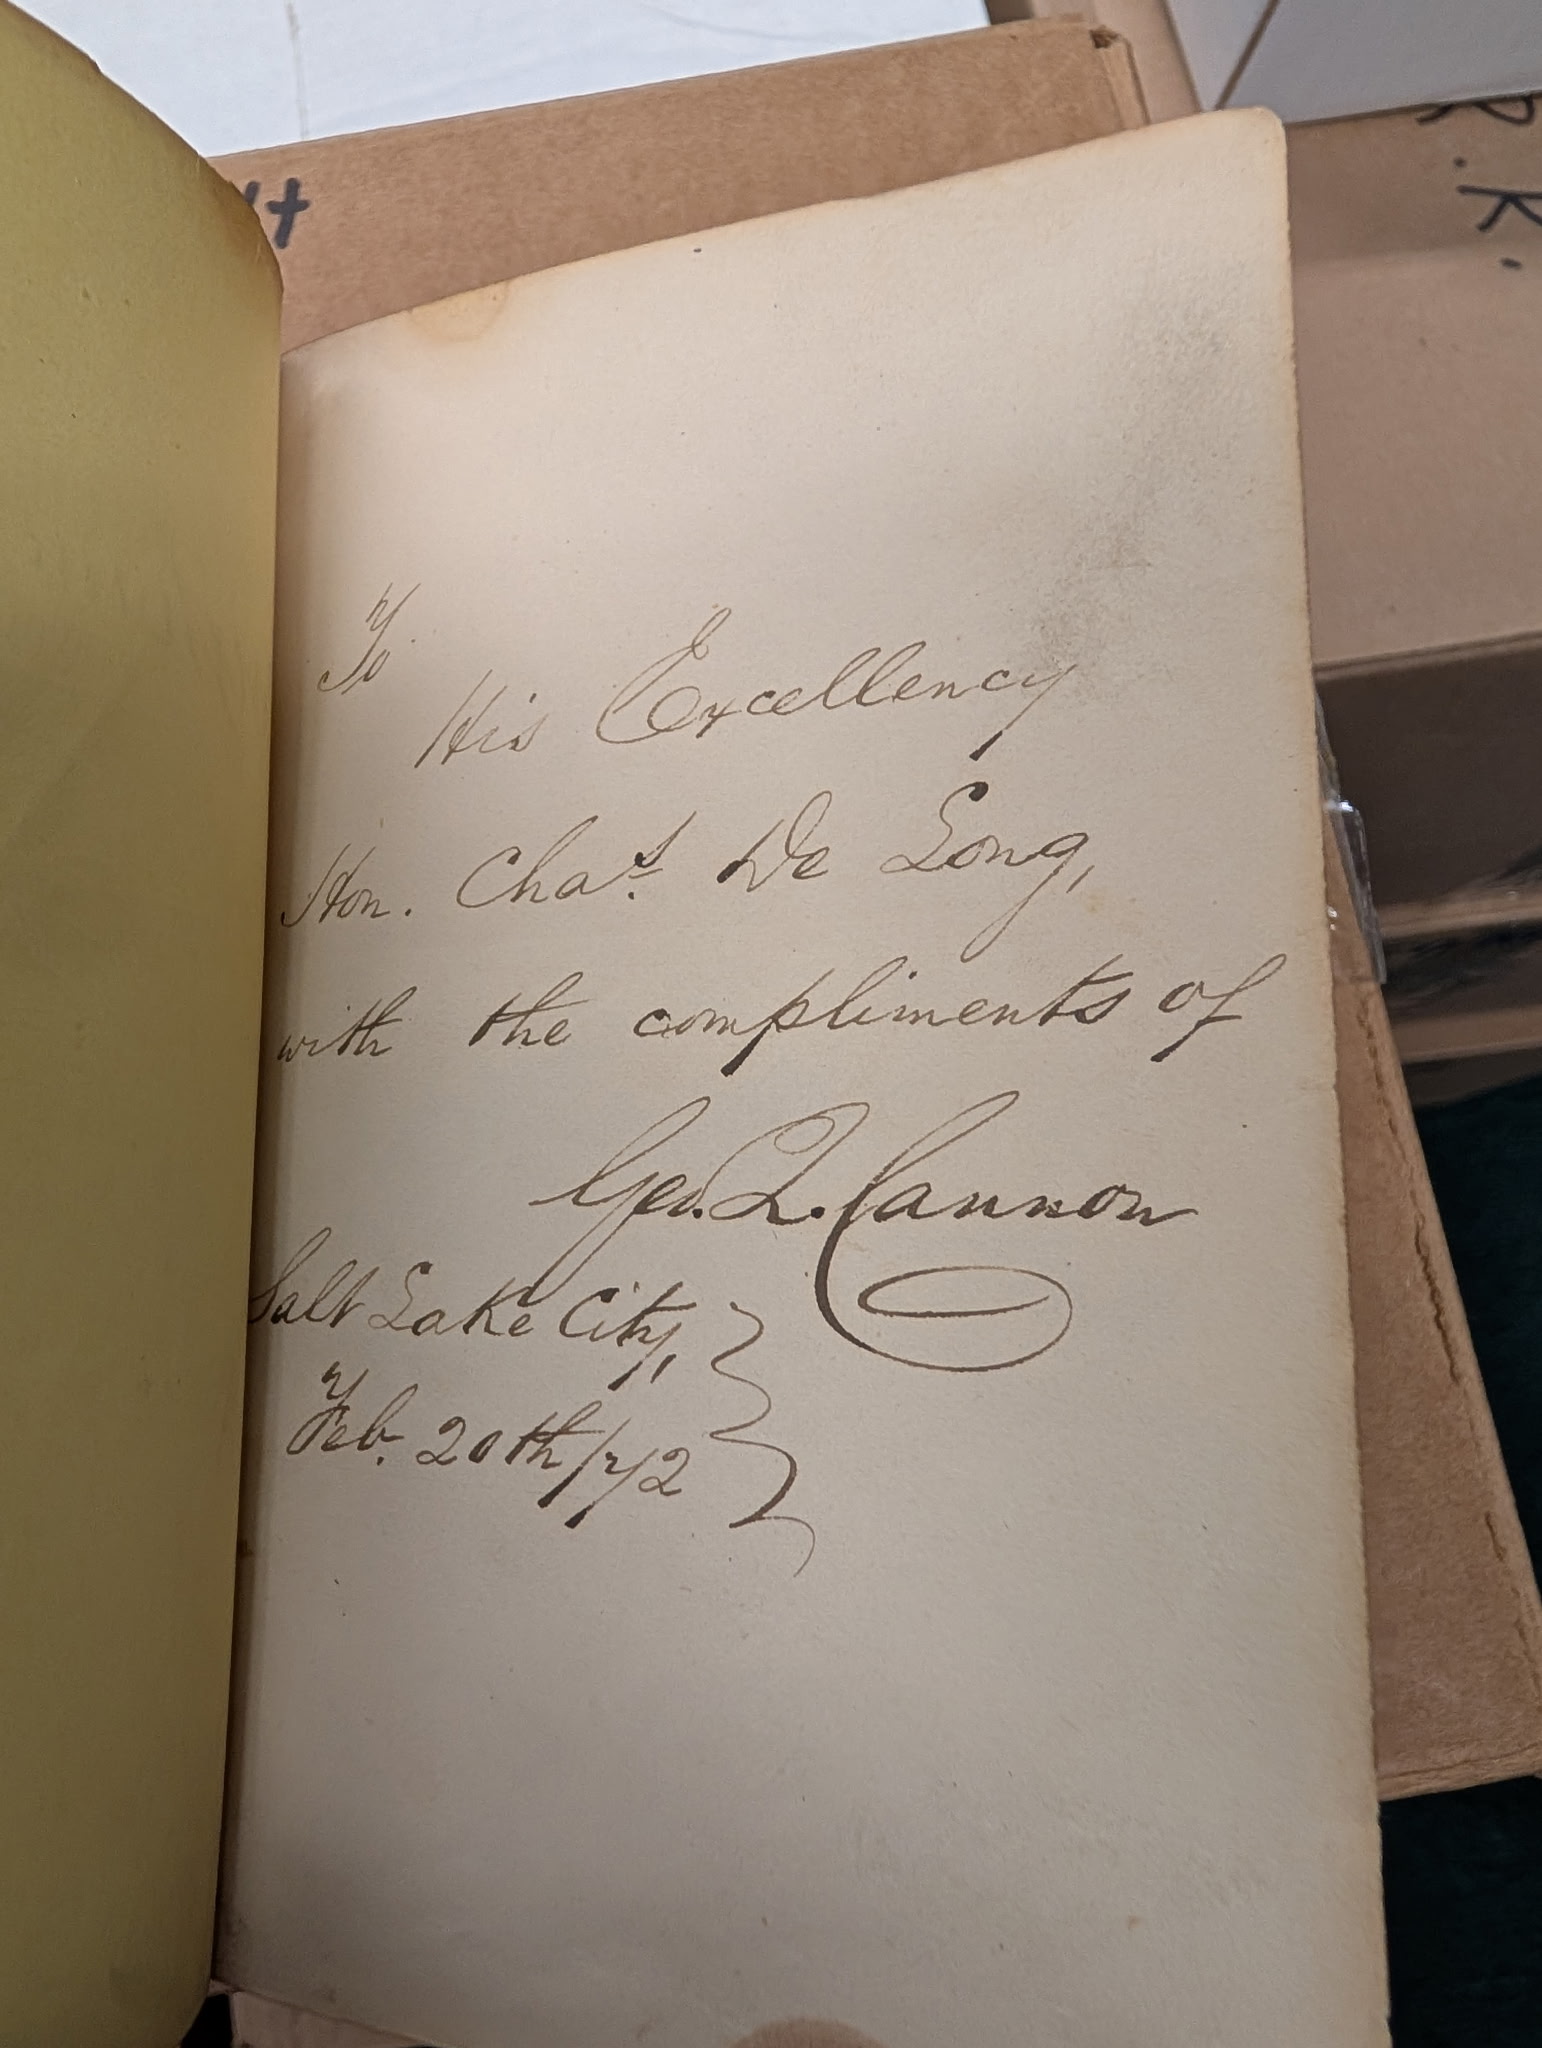 To
His Excellency
Hon. Chas. De Long,
with the compliments of
Geo. Q. Cannon
Salt Lake City,
Feb. 20th/72
R.K.